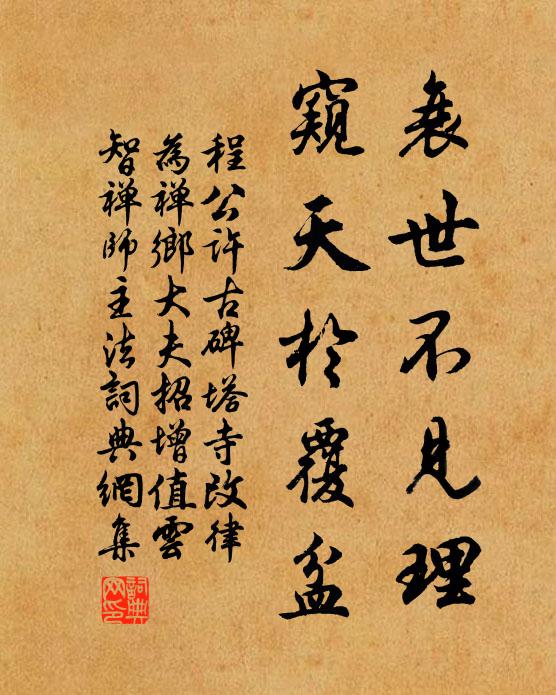 衰世不見理
窺天於覆盆
程公許古碑塔寺改律
為禪鄉大夫招增值雲
智禪師主法詞典網集
詞典
网印